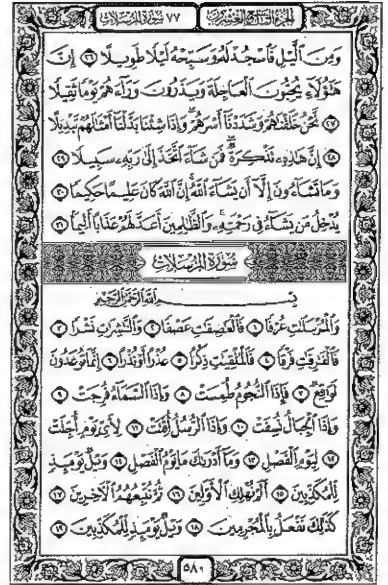 الجزء التاسع والعشرون ٧٧ سورة المرسلات
وَمِنَ ٱلَّيْلِ فَٱسْجُدْ لَهُۥ وَسَبِّحْهُ لَيْلًا طَوِيلًا ٢٦ إِنَّ
هَٰٓؤُلَآءِ يُحِبُّونَ ٱلْعَاجِلَةَ وَيَذَرُونَ وَرَآءَهُمْ يَوْمًا ثَقِيلًا
٢٧ نَّحْنُ خَلَقْنَٰهُمْ وَشَدَدْنَآ أَسْرَهُمْ وَإِذَا شِئْنَا بَدَّلْنَآ أَمْثَٰلَهُمْ تَبْدِيلًا
٢٨ إِنَّ هَٰذِهِۦ تَذْكِرَةٌ فَمَن شَآءَ ٱتَّخَذَ إِلَىٰ رَبِّهِۦ سَبِيلًا ٢٩
وَمَا تَشَآءُونَ إِلَّآ أَن يَشَآءَ ٱللَّهُ إِنَّ ٱللَّهَ كَانَ عَلِيمًا حَكِيمًا ٣٠
يُدْخِلُ مَن يَشَآءُ فِى رَحْمَتِهِۦ وَٱلظَّٰلِمِينَ أَعَدَّ لَهُمْ عَذَابًا أَلِيمًۢا ٣١
سُورَةُ المُرْسَلَات
بِسْمِ ٱللَّهِ ٱلرَّحْمَٰنِ ٱلرَّحِيمِ
وَٱلْمُرْسَلَٰتِ عُرْفًا ١ فَٱلْعَٰصِفَٰتِ عَصْفًا ٢ وَٱلنَّٰشِرَٰتِ نَشْرًا ٣
فَٱلْفَٰرِقَٰتِ فَرْقًا ٤ فَٱلْمُلْقِيَٰتِ ذِكْرًا ٥ عُذْرًا أَوْ نُذْرًا ٦ إِنَّمَا تُوعَدُونَ
لَوَٰقِعٌ ٧ فَإِذَا ٱلنُّجُومُ طُمِسَتْ ٨ وَإِذَا ٱلسَّمَآءُ فُرِجَتْ ٩
وَإِذَا ٱلْجِبَالُ نُسِفَتْ ١٠ وَإِذَا ٱلرُّسُلُ أُقِّتَتْ ١١ لِأَىِّ يَوْمٍ أُجِّلَتْ
١٢ لِيَوْمِ ٱلْفَصْلِ ١٣ وَمَآ أَدْرَىٰكَ مَا يَوْمُ ٱلْفَصْلِ ١٤ وَيْلٌ يَوْمَئِذٍ
لِّلْمُكَذِّبِينَ ١٥ أَلَمْ نُهْلِكِ ٱلْأَوَّلِينَ ١٦ ثُمَّ نُتْبِعُهُمُ ٱلْءَاخِرِينَ ١٧
كَذَٰلِكَ نَفْعَلُ بِٱلْمُجْرِمِينَ ١٨ وَيْلٌ يَوْمَئِذٍ لِّلْمُكَذِّبِينَ ١٩
٥٨٩